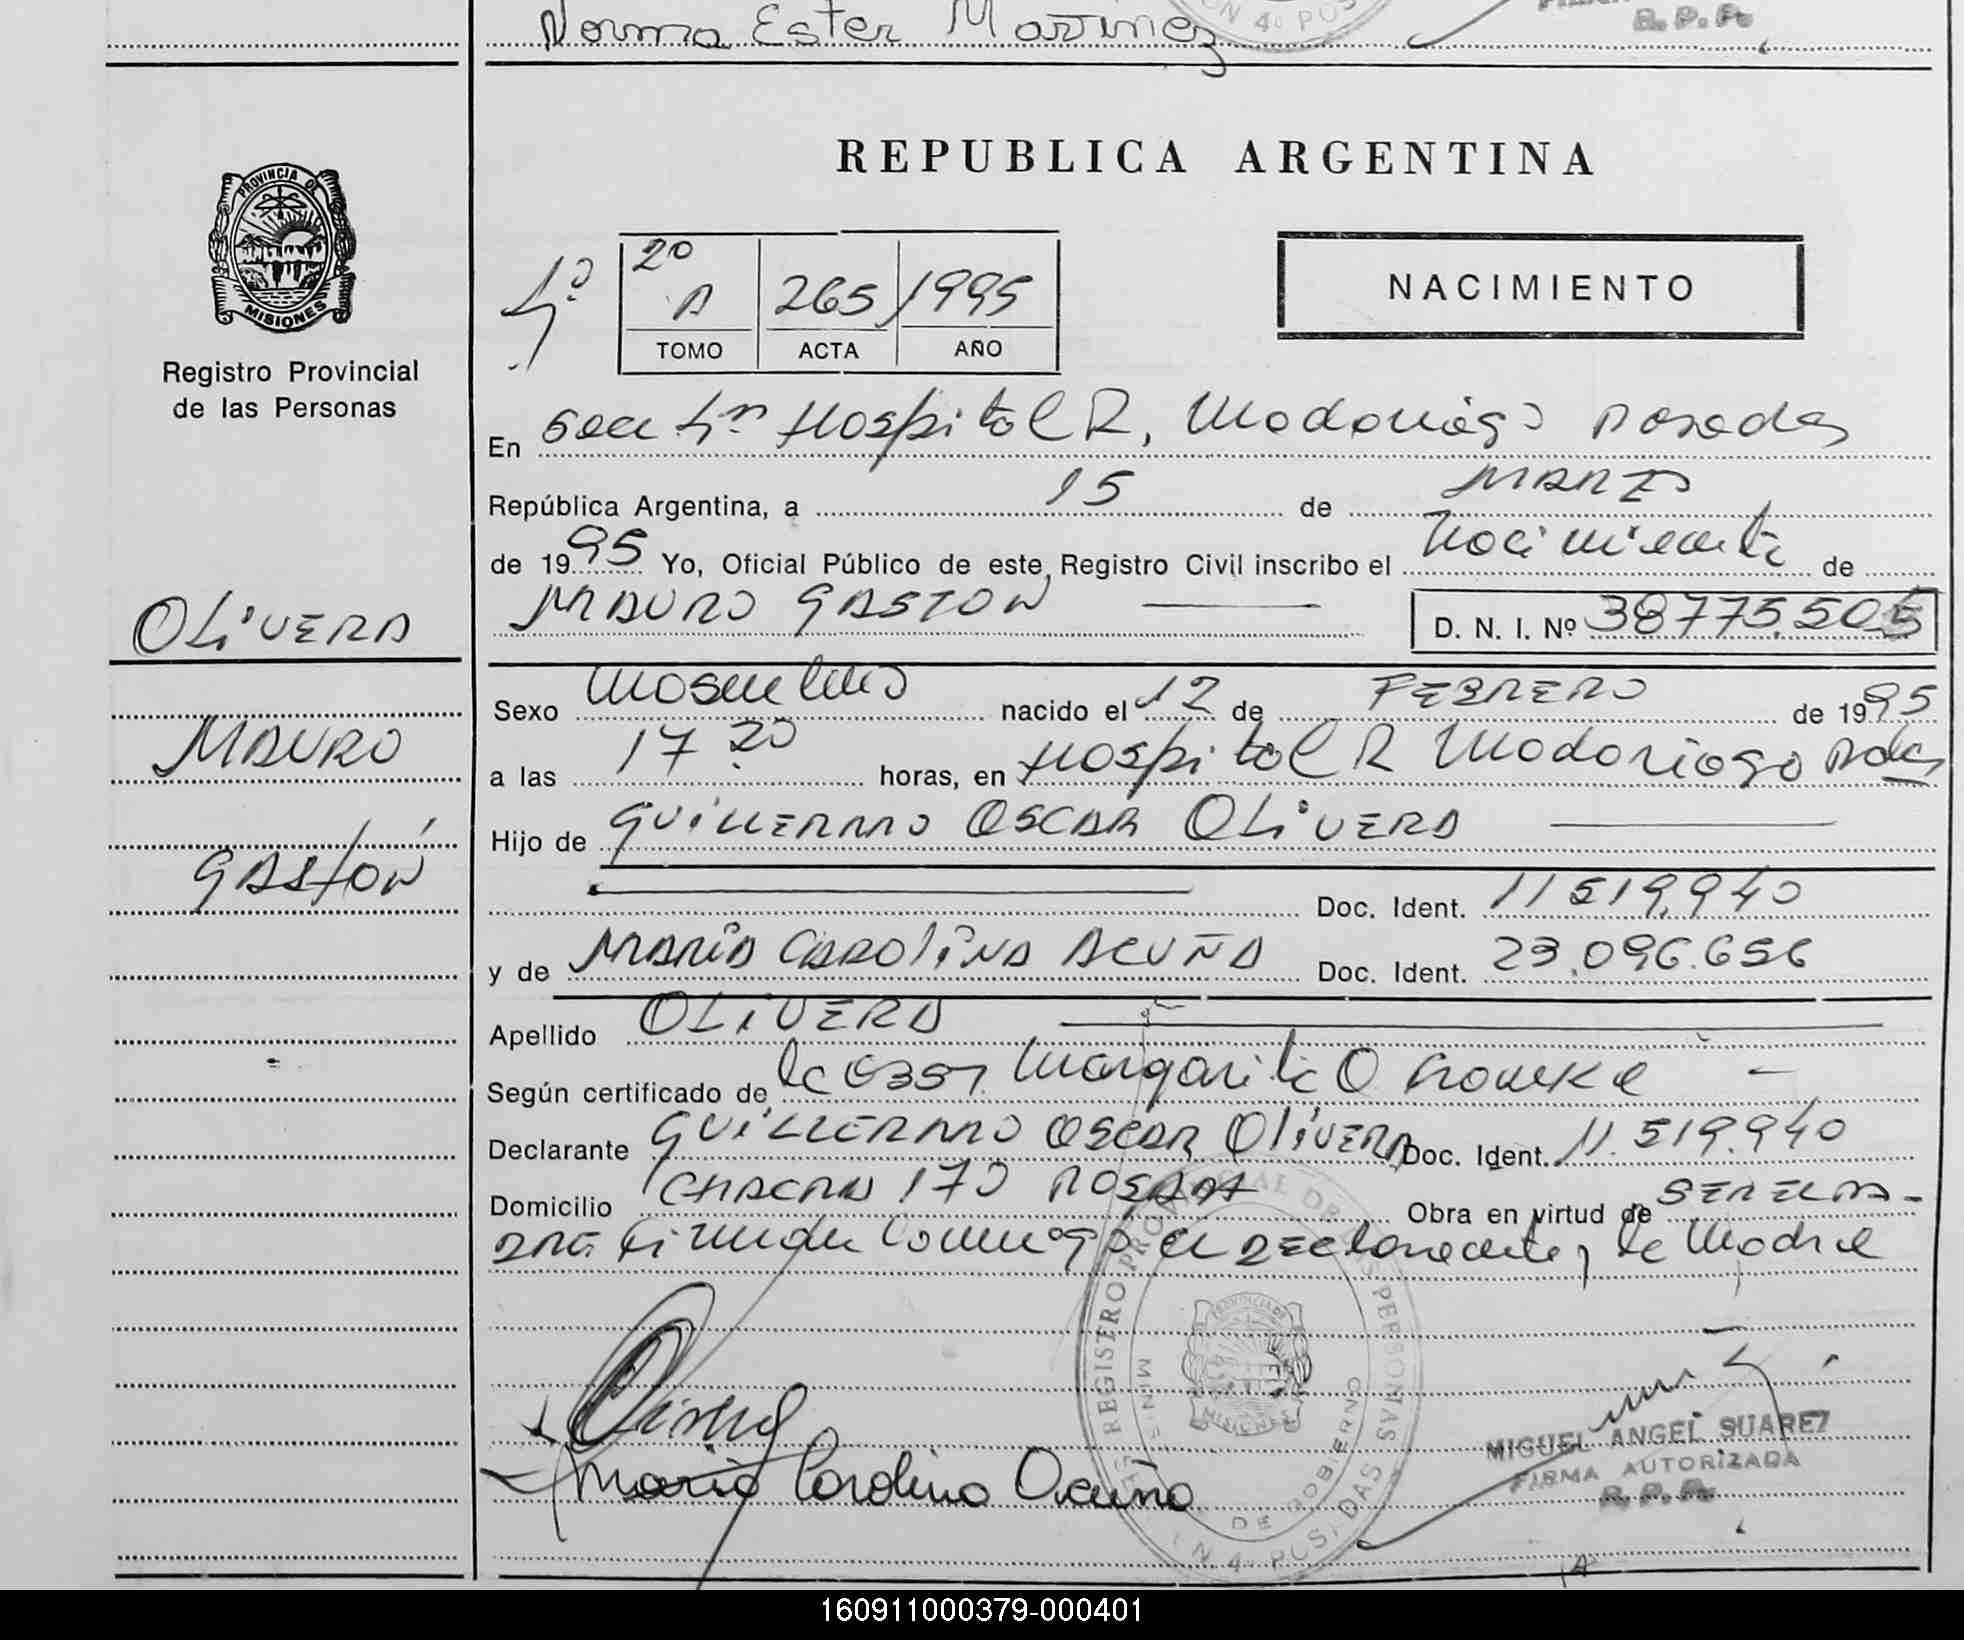 Norma Ester Martinez
R.P.P.
REPUBLICA ARGENTINA
PROVINCIA DE
MISIONES
Registro Provincial
de las Personas
4º
2º
A 265 / 1995
TOMO ACTA AÑO
NACIMIENTO
En Secc 4ª Hospital R. Madariaga Posadas
República Argentina, a 15 de MARZO
de 1995 Yo, Oficial Público de este Registro Civil inscribo el Nacimiento de
MAURO GASTON D. N. I. Nº 38775.505
OLIVERA
MAURO
GASTON
Sexo Masculino nacido el 12 de FEBRERO de 1995
a las 17 20 horas, en Hospital R Madariaga Pdas
Hijo de GUILLERMO OSCAR OLIVERA
Doc. Ident. 11519.940
y de MARIA CAROLINA ACUÑA Doc. Ident. 23.096.656
Apellido OLIVERA
Según certificado de la Obst. Margarita O
Declarante GUILLERMO OSCAR OLIVERA Doc. Ident. 11.519.940
Domicilio CHACRA 170 POSADAS Obra en virtud de SER EL PA-
DRE Firman conmigo el DEclarante y la Madre
REGISTRO PROVINCIAL DE LAS PERSONAS
MISIONES
DE GOBIERNO
Maria Carolina Acuña
MIGUEL ANGEL SUAREZ
FIRMA AUTORIZADA
R.P.P.
160911000379-000401